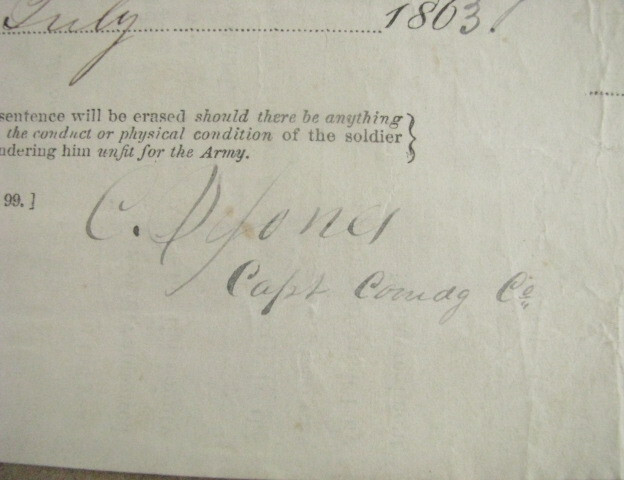 July 1863.
sentence will be erased should there be anything
the conduct or physical condition of the soldier
ndering him unfit for the Army.
99.]
C.
Capt Comdg Co